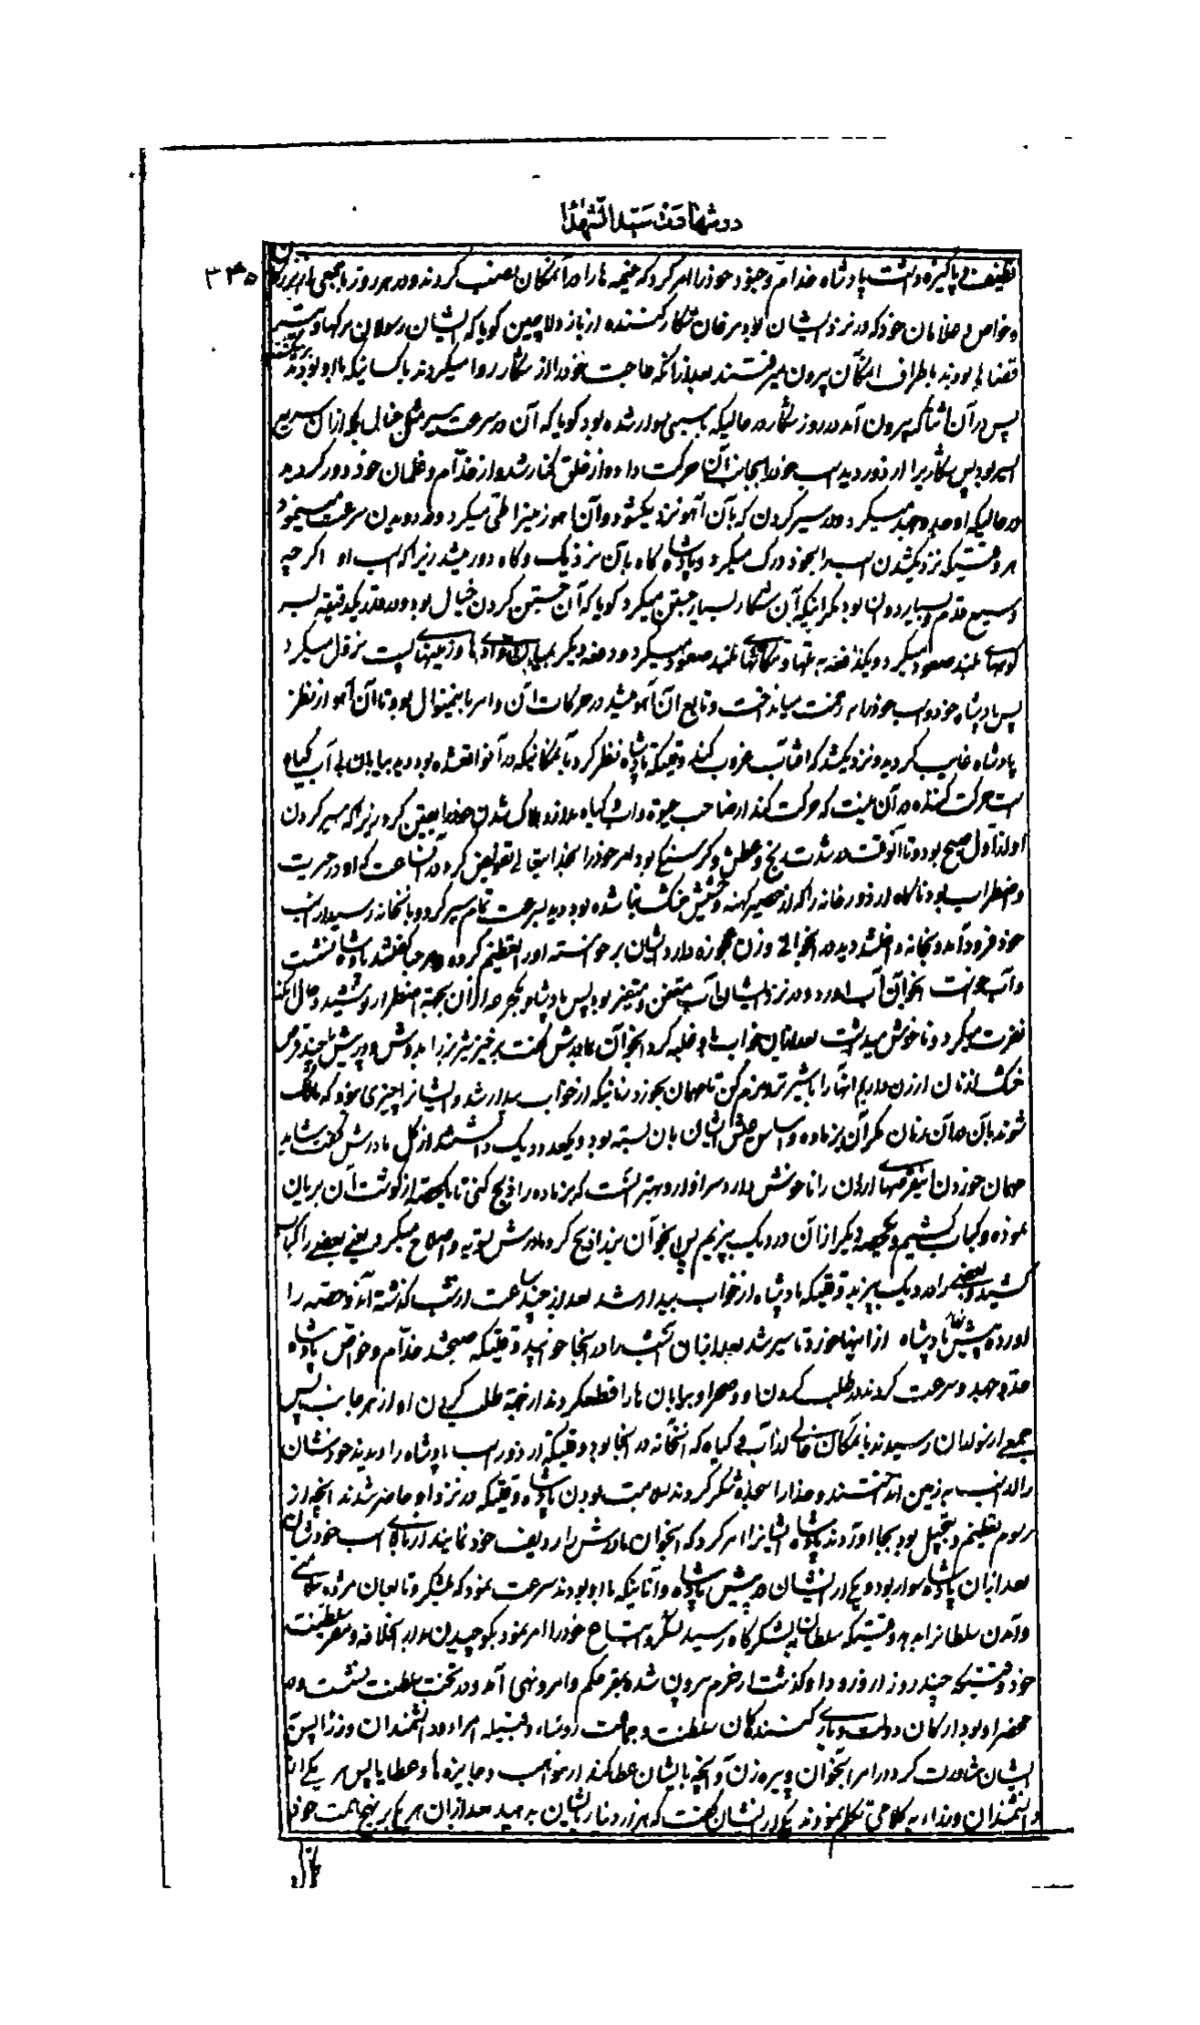 در شهادت سید الشهدا
۳۴۵
نظیف و پاکیزه داشت پادشاه خدام و جنود خود را امر کرد که خیمه ها را در آنمکان نصب کردند و در هر روز با جمعی از بزرگان
و خواص و غلامان خود که در نزد ایشان بود مرغان شکار کننده از باز و لاچین گویا که ایشان رسولان مرکها و تیر
قضاها بودند باطراف آنمکان بیرون میرفتند بعد از آنکه حاجت خود را از شکار روا میکردند با کسانیکه با او بودند برمیگشتند
پس در آن اثنا که بیرون آمد در روز شکار در حالیکه باسبی سوار شده بود گویا که آن در سرعت سیر مثل خیال بلکه از آن سریع
السیر بود پس شکاریرا از دور دید اسب خود را بجانب آن حرکت داد و از خلق کنار شد و از خدام و غلمان خود دور گردید
در حالیکه او جد و جهد میکرد در سیر کردن که بآن آهو نزدیکشود و آن آهو زمین را طی میکرد و در دویدن سرعت مینمود
هر وقتیکه نزدیکشدن اسب را بخود درک میکرد و پادشاه گاه بآن نزدیک و گاه دور میشد زیرا که اسب او اگر چه
وسیع قدم و بسیار دوان بود مگر اینکه آن شکار بسیار جستن میکرد گویا که آن جستن کردن خیال بود و در قدر یکدقیقه بسر
کوههای بلند صعود میکرد و یکدفعه به تلها و مکانهای بلند صعود میکرد و دفعه دیگر بمیان وادیها و زمینهای پست نزول میکرد
پس پادشاه خود و اسب خود را به زحمت میانداخت و تابع آن آهو میشد در حرکات آن و امر باینمنوال بود تا آن آهو از نظر
پادشاه غایب گردید و نزدیکشد که آفتاب غروب کند وقتیکه پادشاه نظر کرد بآنمکانیکه در آن واقعشده بود دید بیابان بی آب گیاه
است حرکت کننده در آن نیست که حرکت کند از صاحب حیوة و آب و گیاه ندارد هلاک شدن خود را یقین کرد زیرا که سیر کردن
او از اول صبح بود و تا آنوقت در شدت رنج و عطش و گرسنگی بود امر خود را بخدایتعالی تفویض کرد در آنساعت که او در حیرت
و اضطراب بود ناگاه از دور خانه را که از حصیر کهنه و حشیش خشک بنا شده بود دید بسرعت تمام سیر کرد و بآنخانه رسید از اسب
خود فرود آمد و بخانه داخلشد دید در آنجا جوانی و زن عجوزه دارد ایشان برخواسته او را تعظیم کرده و مرحبا گفتند پادشاه نشست
و آب خواست آنجوان آب آورد در نزد ایشان آب متعفن و متغیر بود پس پادشاه یکجرعه از آن بجهة اضطرار نوشید و حال آنکه
نفرت میکرد و ناخوش میداشت بعد از آن خواب باو غلبه کرد آنجوان بمادرش گفت برخیز شیر بز را بدوش و در پیش ما چند قرص
خشک از نان ارزن داریم آنها را با شیر تر و نرم کن تا مهمان بخورد زمانیکه از خواب بیدار شد و ایشانرا چیزی نبود که مالک
شوند بآن جز آن نان مگر آن بز ماده و اساس عیش ایشان بآن بسته بود و یکعدد دیک داشتند از گل مادرش گفت شاید
مهمان خوردن این قرصهای ارزن را ناخوش دارد سزاوار و بهتر آنست که بز ماده را ذبح کنی تا یکحصه از گوشت آن بریان
نموده و کباب کشیم و یکحصه دیگر از آن در دیک بپزیم پس آنجوان بز را ذبح کرد مادرش تسویه و اصلاح میکرد یعنی بعضی را کباب
کشید و بعضی را در دیک بپزید وقتیکه پادشاه از خواب بیدار شد بعد از چند ساعت از شب گذشته آندو حصه را
آورده پیش پادشاه از اینها خورد تا سیر شد بعد از آن آنشب را در آنجا خوابید وقتیکه صبحشد خدام و خواص پادشاه
جد و جهد و سرعت کردند در طلب کردن او و صحرا و بیابان ها را قطعکردند از جهة طلب کردن او از هر جانب پس
جمعی از نوکران رسیدند بآنمکان خالی از آب و گیاه که آنخانه در آنجا بود وقتیکه از دور اسب پادشاه را دیدند خودشان
را از اسب به زمین انداختند و خدا را سجده شکر کردند بسلامت بودن پادشاه وقتیکه در نزد او حاضر شدند آنچه از
رسوم تعظیم و تبجیل بود بجا آوردند پادشاه ایشانرا امر کرد که آنجوان و مادرش را ردیف خود نمایند
بعد از آن پادشاه سوار بود و یکی از ایشان در پیش پادشاه و آنانیکه با او بودند سرعت نمود که لشکر و تابعان مژده سلامتی
و آمدن سلطانرا بدهد وقتیکه سلطان بلشکرگاه رسید لشکر و اتباع خود را امر نمود بکوچیدن بدار الخلافه و مقر سلطنت
خود وقتیکه چند روز از ورود او گذشت از حرم بیرون شده بمقر حکم و امر و نهی آمد و در تخت سلطنت نشست و در
محضر او بود ارکان دولت و یاری کنندگان سلطنت و جماعت رؤساء و قبیله امراء و دانشمندان و وزراء پس از
ایشان مشاورت کرد در امر آنجوان و پیره زن و آنچه بایشان عطا کند از مواهب و جایزه ها و عطایا پس هر یکی از
دانشمندان و وزراء به کلامی تکلم نمودند یکی از ایشان گفت که هزار دینار بایشان بدهید بعد از آن هر یکی بر نهج همت خود